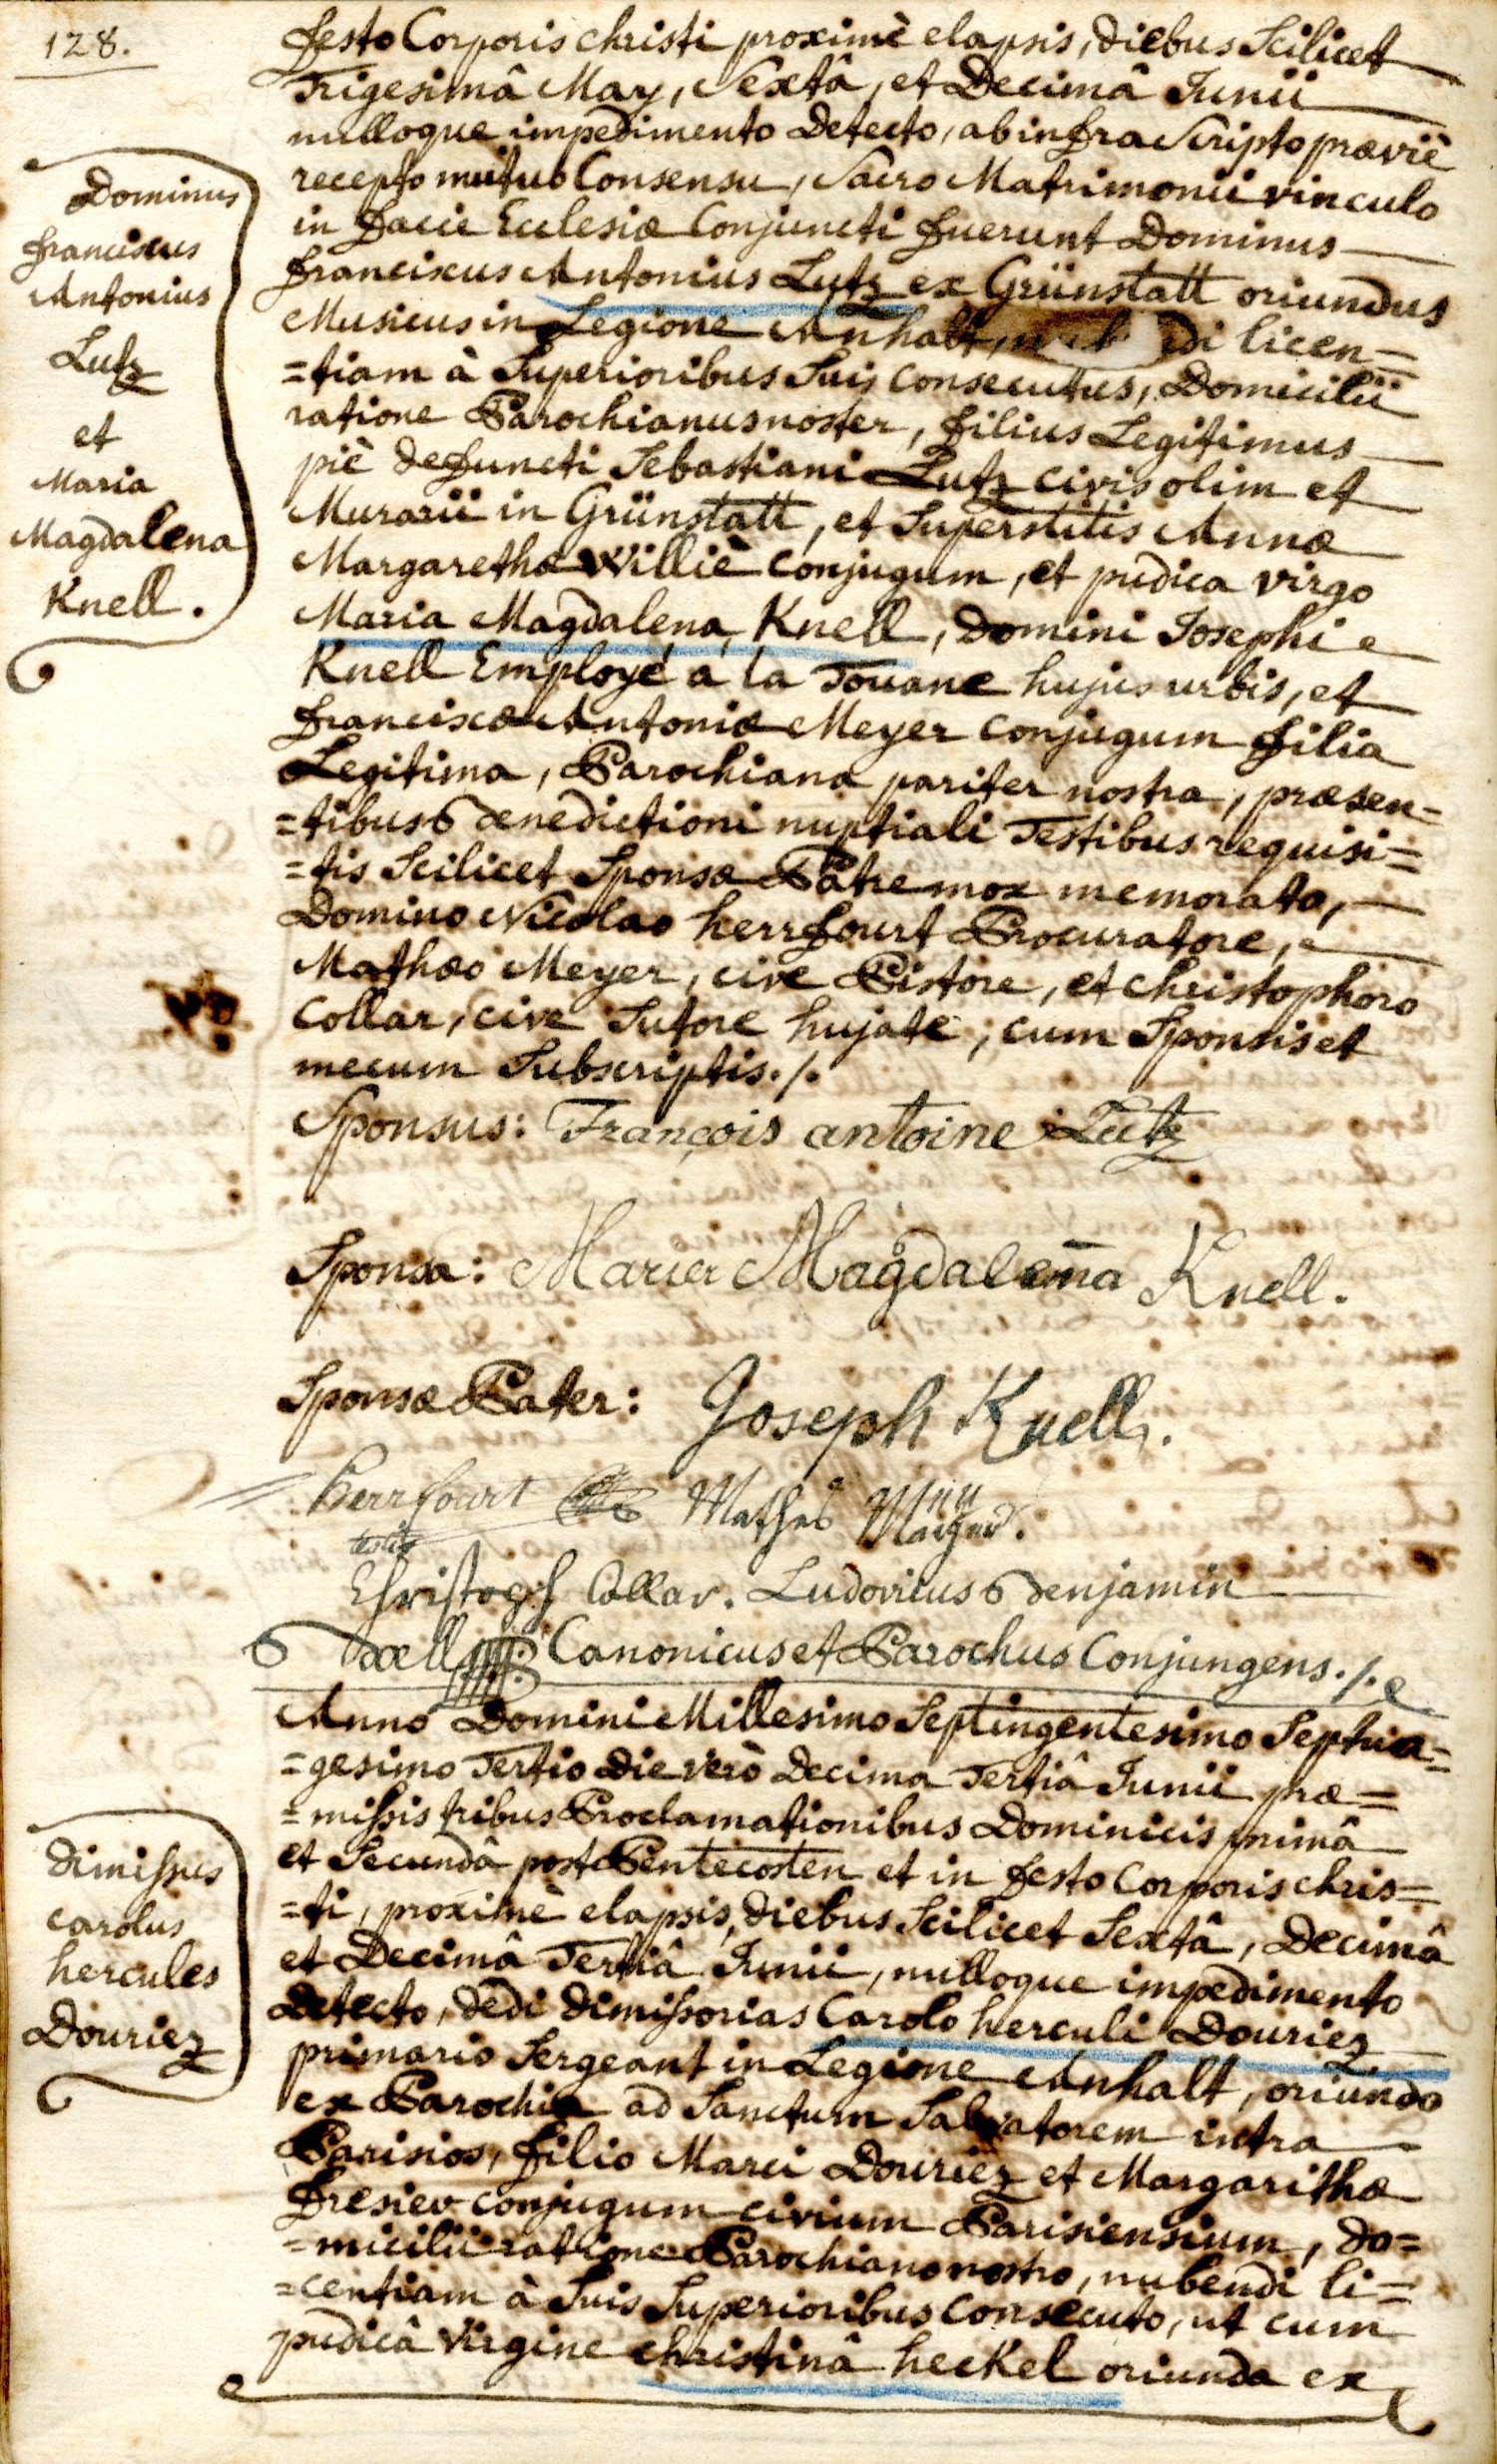 128.
festo Corporis christi proximè elapsis, diebus Scilicet
Trigesimâ May, Sextâ, et Decimâ Junii
nulloque impedimento Detecto, ab infra Scripto præviè
recepto mutuo Consensu, Sacro Matrimonii vinculo
in facie Ecclesiæ Conjuncti fuerunt Dominus
franciscus Antonius Lutz ex Grünstatt oriundus
Musicus in Legione Anhalt, di licen=
=tiam à Superioribus Suis consecutus, Domicilii
ratione Parochianus noster, filius Legitimus
piè defuncti Sebastiani Lutz civis olim et
Murarii in Grünstatt, et Superstitis Annæ
Margarethæ Williè conjugum, et pudica virgo
Maria Magdalena Knell, Domini Josephi
Knell Employé a la Douane hujus urbis, et
franciscæ Antoniæ Meyer conjugum filia
Legitima, Parochiana pariter nostra, præsen=
=tibus Benedictioni nuptiali Testibus requisi=
=tis Scilicet Sponsæ Patre mox memorato,
Domino Nicolao herrfourt Procuratore,
Mathæo Meyer, cive Pistore, et christophoro
Collar, cive Sutore hujate, cum Sponsis et
mecum Subscriptis./.
Dominus
franciscus
Antonius
Lutz
et
Maria
Magdalena
Knell.
Sponsus: François antoine Lutz
Sponsa: Maria Magdalena Knell.
Sponsæ Pater: Joseph Knell.
herrfourt Mathes
testis
Christoph Collar. Ludovicus Benjamin
Canonicus et Parochus Conjungens./.
Anno Domini Millesimo Septingentesimo Septua=
=gesimo Tertio die verò Decima Tertiâ Junii præ=
=missis tribus Proclamationibus Dominicis primâ
et Secundâ post Pentecosten et in festo Corporis chris=
=ti, proximè elapsis, diebus Scilicet Sextâ, Decimâ
et Decimâ Tertiâ Junii, nulloque impedimento
Detecto, dedi dimissorias Carolo herculi Douriez
primario Sergeant in Legione Anhalt, oriundo
ex Parochia ad Sanctum Salvatorem intra
Parisios, filio Marci Douriez et Margarithæ
fresiev conjugum civium Parisiensium, do=
=micilii ratione Parochiano nostro, nubendi li=
=centiam à Suis Superioribus consecuto, ut cum
pudicâ Virgine christinâ heckel oriunda ex
dimissus
carolus
hercules
Douriez